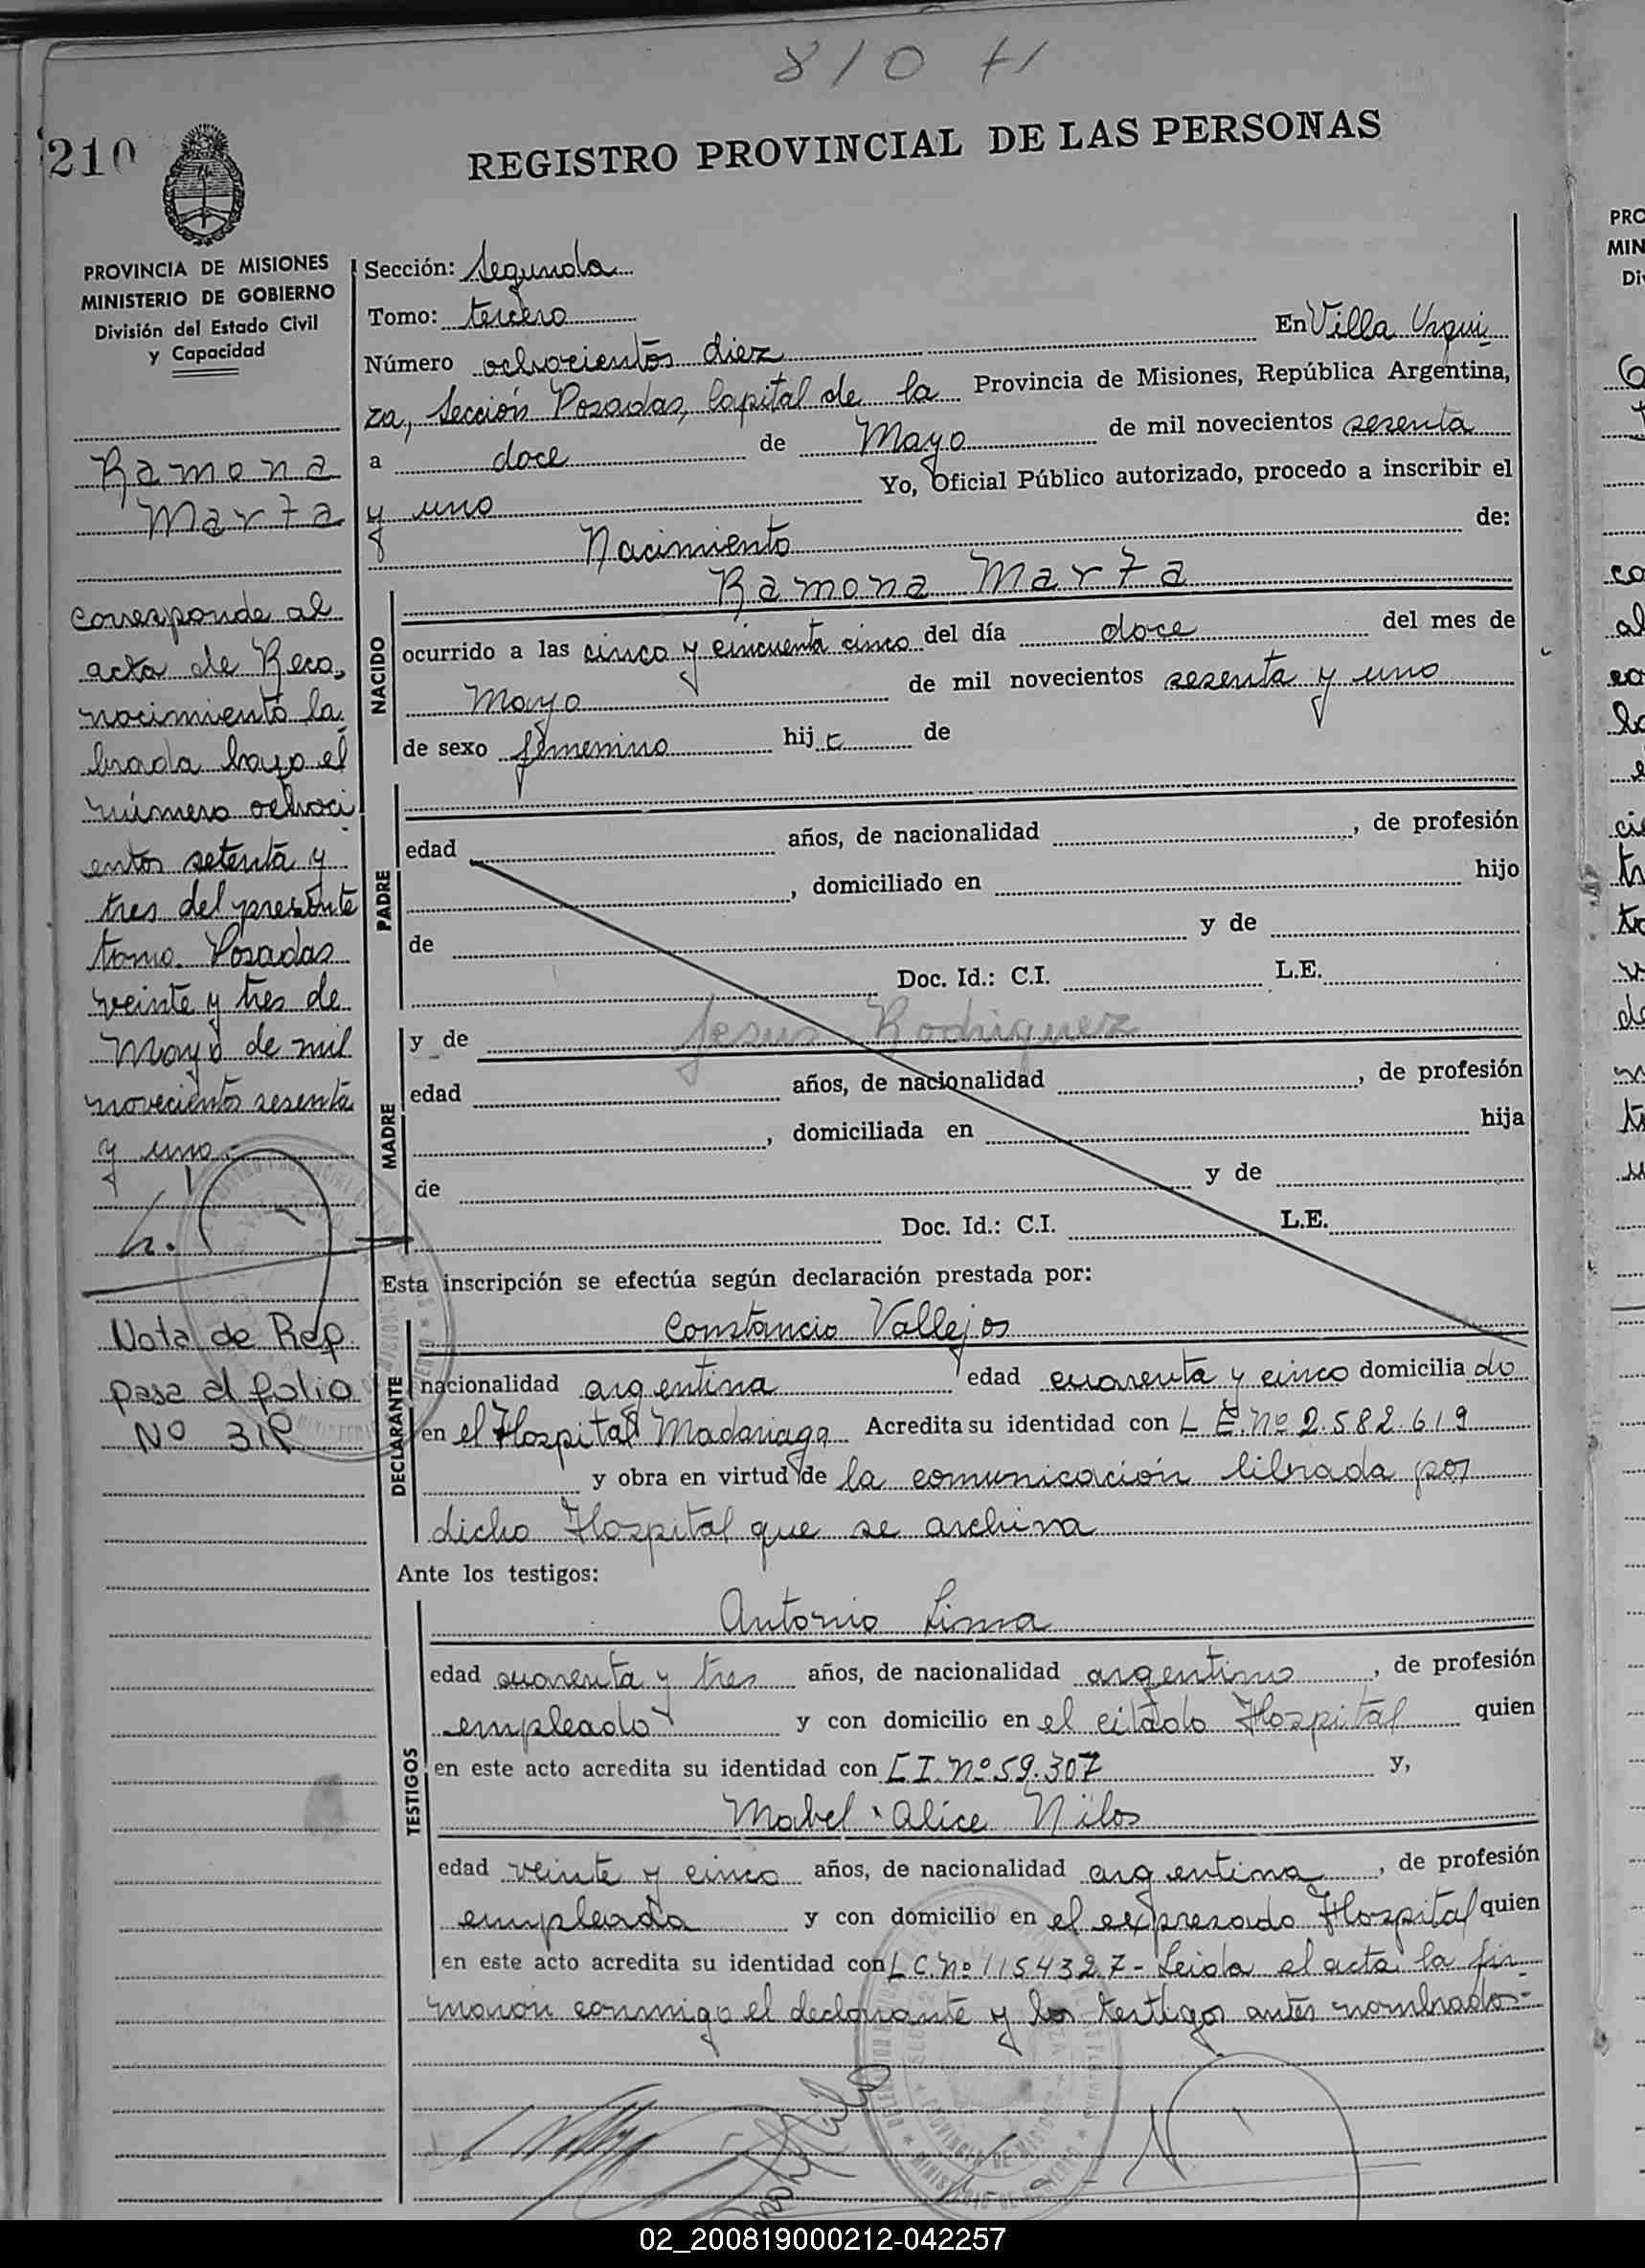 810 H
210
REGISTRO PROVINCIAL DE LAS PERSONAS
PROVINCIA DE MISIONES
MINISTERIO DE GOBIERNO
División del Estado Civil
y Capacidad
Ramona
Marta
corresponde al
acta de Reco,
nocimiento la
brada bayo el
número ochoci
entos setenta y
tres del presente
tomo. Posadas
veinte y tres de
Mayo de mil
novecientos sesenta
y uno.-
Nota de Rep
pasa al folio
Nº 312
Sección: Segunda
Tomo: tercero
Número ochocientos diez En Villa Urqui
za, Sección Posadas, Capital de la Provincia de Misiones, República Argentina,
a doce de Mayo de mil novecientos sesenta
y uno Yo, Oficial Público autorizado, procedo a inscribir el
Nacimiento de:
Ramona Marta
NACIDO
ocurrido a las cinco y cincuenta cinco del día doce del mes de
Mayo de mil novecientos sesenta y uno
de sexo femenino hij de
PADRE
edad años, de nacionalidad , de profesión
, domiciliado en hijo
de y de
Doc. Id.: C.I. L.E.
y de Jesus Rodriguez
MADRE
edad años, de nacionalidad , de profesión
, domiciliada en hija
de y de
Doc. Id.: C.I. L.E.
Esta inscripción se efectúa según declaración prestada por:
Constancio Vallejos
DECLARANTE
nacionalidad argentina edad cuarenta y cinco domicilia do
en el Hospital Madariaga Acredita su identidad con L E. Nº 2.582.619
y obra en virtud de la comunicación librada por
dicho Hospital que se archiva
Ante los testigos:
Antonio Lima
TESTIGOS
edad cuarenta y tres años, de nacionalidad argentino , de profesión
empleado y con domicilio en el citado Hospital quien
en este acto acredita su identidad con C I. Nº 59.307 y,
Mabel Alice Nilos
edad veinte y cinco años, de nacionalidad argentina , de profesión
empleada y con domicilio en el expresado Hospital quien
en este acto acredita su identidad con L C. Nº 1154327- Leida el acta la fir
maron conmigo el declarante y los testigos antes nombrados-
02_200819000212-042257